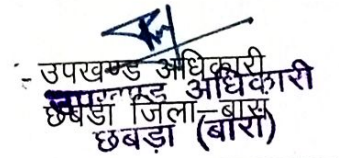 :- उपखण्ड अधिकारी
उपखण्ड अधिकारी
छबडा जिला–बारा
छबड़ा (बारां)